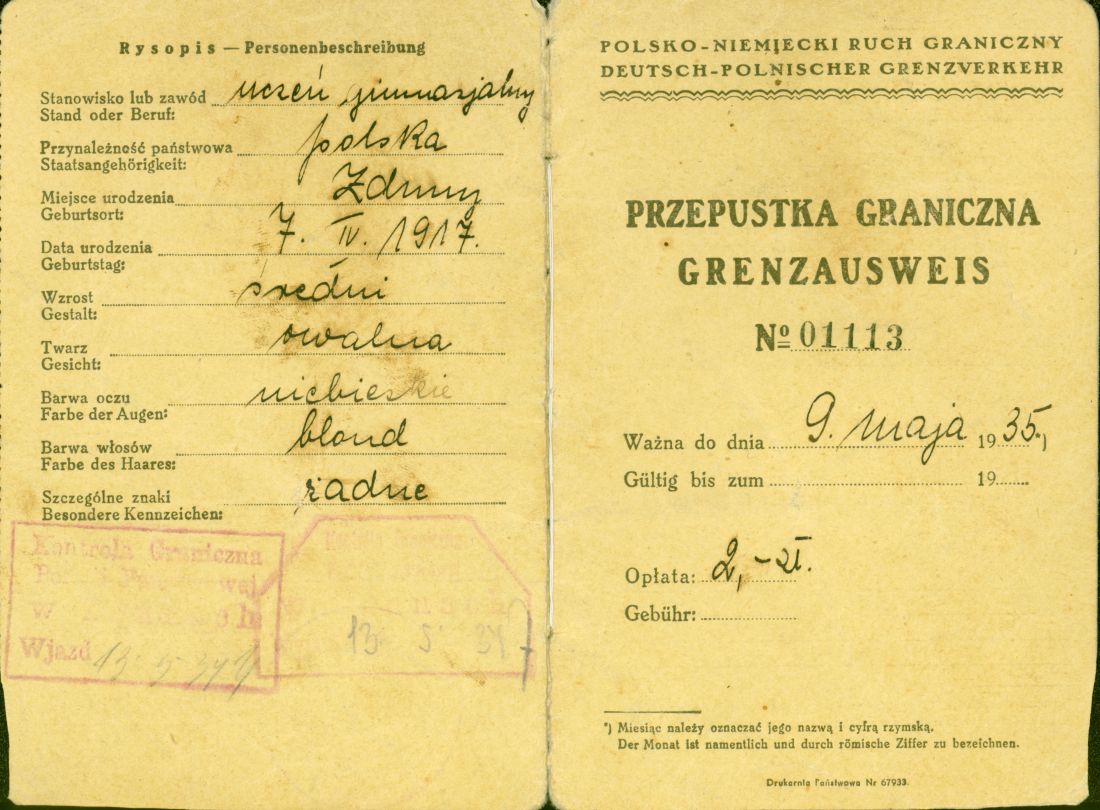 Rysopis — Personenbeschreibung
Stanowisko lub zawód uczeń gimnazjalny
Stand oder Beruf:
Przynależność państwowa polska
Staatsangehörigkeit:
Miejsce urodzenia Zduny
Geburtsort:
Data urodzenia 7. IV. 1917.
Geburtstag:
Wzrost średni
Gestalt:
Twarz owalna
Gesicht:
Barwa oczu niebieskie
Farbe der Augen:
Barwa włosów blond
Farbe des Haares:
Szczególne znaki żadne
Besondere Kennzeichen:
Kontrola Graniczna
w
Wjazd 13 5 34
Kontrola Graniczna
13 5 34
POLSKO-NIEMIECKI RUCH GRANICZNY
DEUTSCH-POLNISCHER GRENZVERKEHR
PRZEPUSTKA GRANICZNA
GRENZAUSWEIS
Nº 01113
Ważna do dnia 9. maja 1935. *)
Gültig bis zum 19
Opłata: 2,- zł.
Gebühr:
*) Miesiąc należy oznaczać jego nazwą i cyfrą rzymską.
Der Monat ist namentlich und durch römische Ziffer zu bezeichnen.
Drukarnia Państwowa Nr 67933.